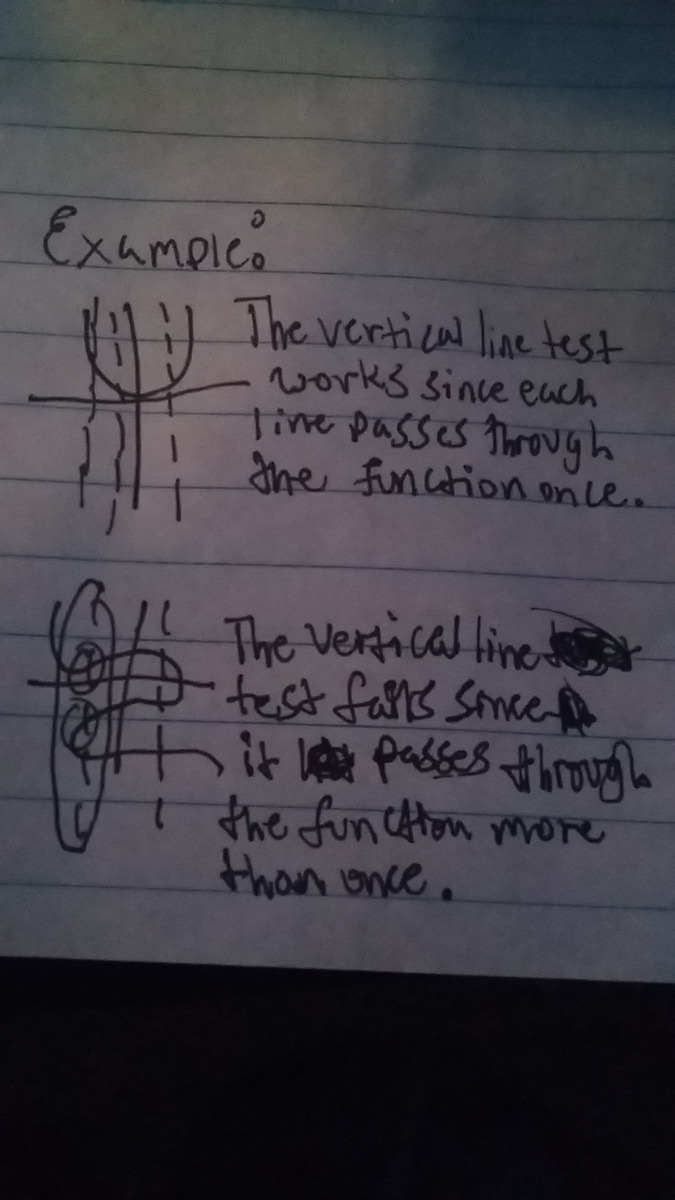 Example:
The vertical line test
works since each
line passes through
the function once.
The vertical line
test fails since
it passes through
the function more
than once.